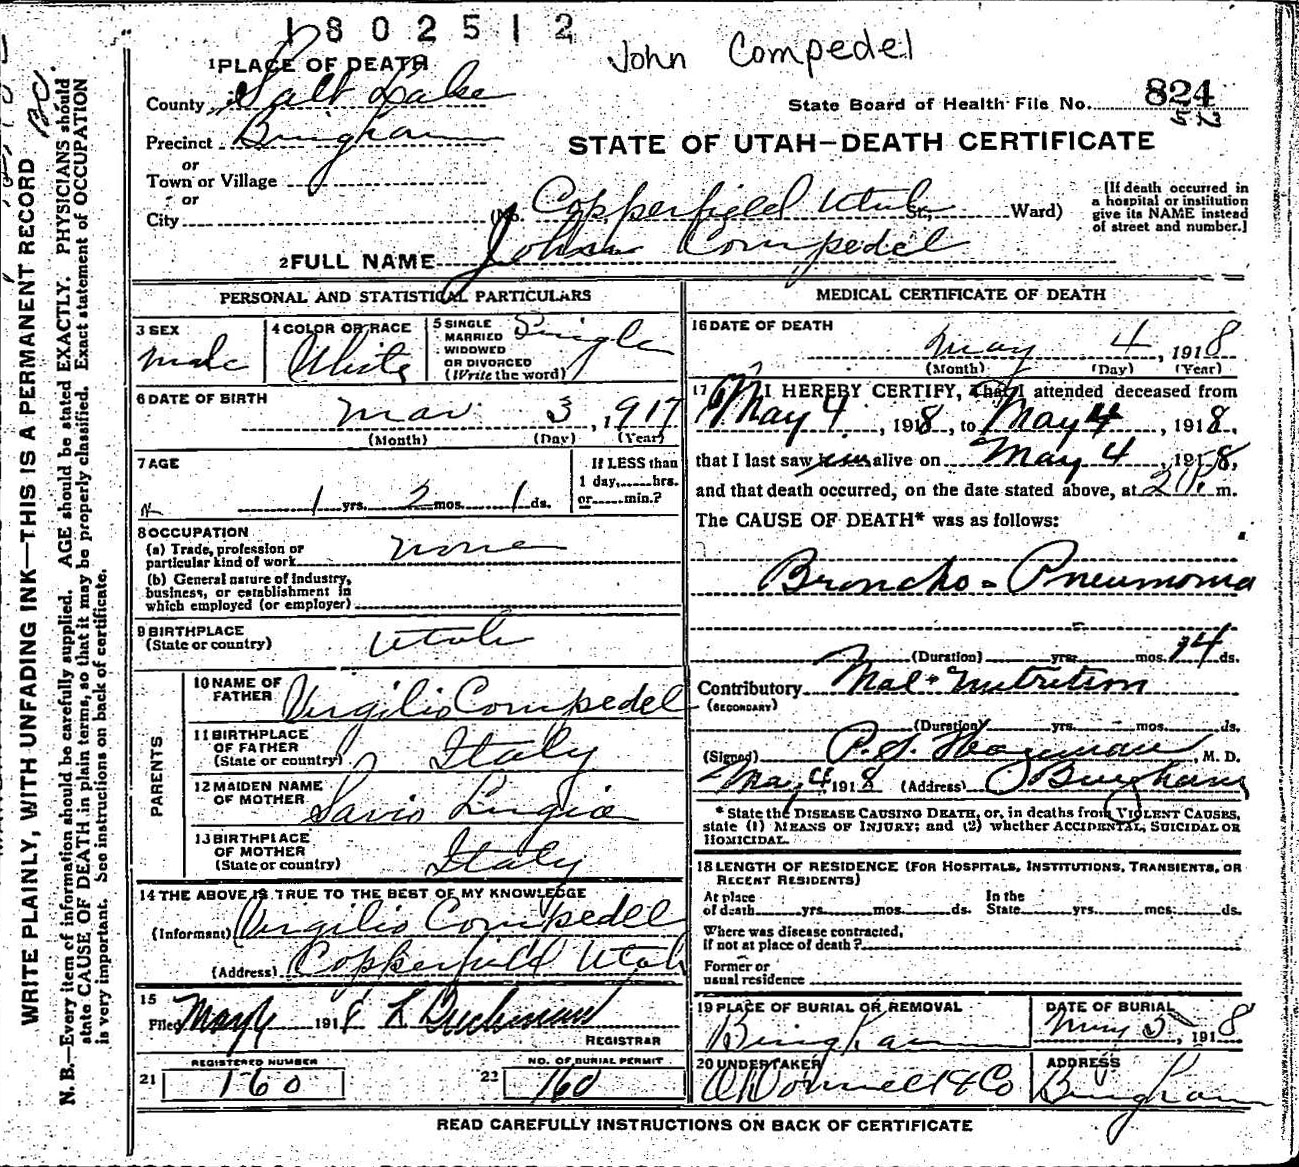 1802512
John Compedel
1 PLACE OF DEATH
County Salt Lake
State Board of Health File No. 824
Precinct Bingham
STATE OF UTAH—DEATH CERTIFICATE
or
Town or Village
or
City
(No. Copperfield Utah St.; Ward)
[If death occurred in
a hospital or institution
give its NAME instead
of street and number.]
2 FULL NAME John Compedel
PERSONAL AND STATISTICAL PARTICULARS
3 SEX
male
4 COLOR OR RACE
White
5 SINGLE
MARRIED
WIDOWED
OR DIVORCED
(Write the word)
Single
6 DATE OF BIRTH
Mar 3, 1917
(Month) (Day) (Year)
7 AGE
1 yrs. 2 mos. 1 ds.
If LESS than
1 day, hrs.
or min.?
8 OCCUPATION
(a) Trade, profession or
particular kind of work none
(b) General nature of Industry,
business, or establishment in
which employed (or employer)
9 BIRTHPLACE
(State or country) Utah
PARENTS
10 NAME OF
FATHER Virgilio Compedel
11 BIRTHPLACE
OF FATHER
(State or country) Italy
12 MAIDEN NAME
OF MOTHER Savio Lugia
13 BIRTHPLACE
OF MOTHER
(State or country) Italy
14 THE ABOVE IS TRUE TO THE BEST OF MY KNOWLEDGE
(Informant) Virgilio Compedel
(Address) Copperfield Utah
15
Filed May 1918
REGISTRAR
REGISTERED NUMBER
21 160
NO. OF BURIAL PERMIT
22 160
MEDICAL CERTIFICATE OF DEATH
16 DATE OF DEATH
May 4, 1918
(Month) (Day) (Year)
17 I HEREBY CERTIFY, That I attended deceased from
May 4, 1918, to May 4, 1918,
that I last saw him alive on May 4, 1918,
and that death occurred, on the date stated above, at 2 m.
The CAUSE OF DEATH* was as follows:
Broncho-Pneumonia
(Duration) yrs. mos. 14 ds.
Contributory Mal-nutrition
(SECONDARY)
(Duration) yrs. mos. ds.
(Signed) M. D.
May 4 1918 (Address) Bingham
* State the DISEASE CAUSING DEATH, or, in deaths from VIOLENT CAUSES,
state (1) MEANS OF INJURY; and (2) whether ACCIDENTAL, SUICIDAL OR
HOMICIDAL.
18 LENGTH OF RESIDENCE (FOR HOSPITALS, INSTITUTIONS, TRANSIENTS, OR
RECENT RESIDENTS)
At place
of death yrs. mos. ds.
In the
State yrs. mos. ds.
Where was disease contracted,
If not at place of death?
Former or
usual residence
19 PLACE OF BURIAL OR REMOVAL
Bingham
DATE OF BURIAL
May 5, 1918
20 UNDERTAKER
O'Donnell & Co
ADDRESS
Bingham
READ CAREFULLY INSTRUCTIONS ON BACK OF CERTIFICATE
WRITE PLAINLY, WITH UNFADING INK—THIS IS A PERMANENT RECORD
N. B.—Every item of information should be carefully supplied. AGE should be stated EXACTLY. PHYSICIANS should
state CAUSE OF DEATH in plain terms, so that it may be properly classified. Exact statement of OCCUPATION
is very important. See instructions on back of certificate.